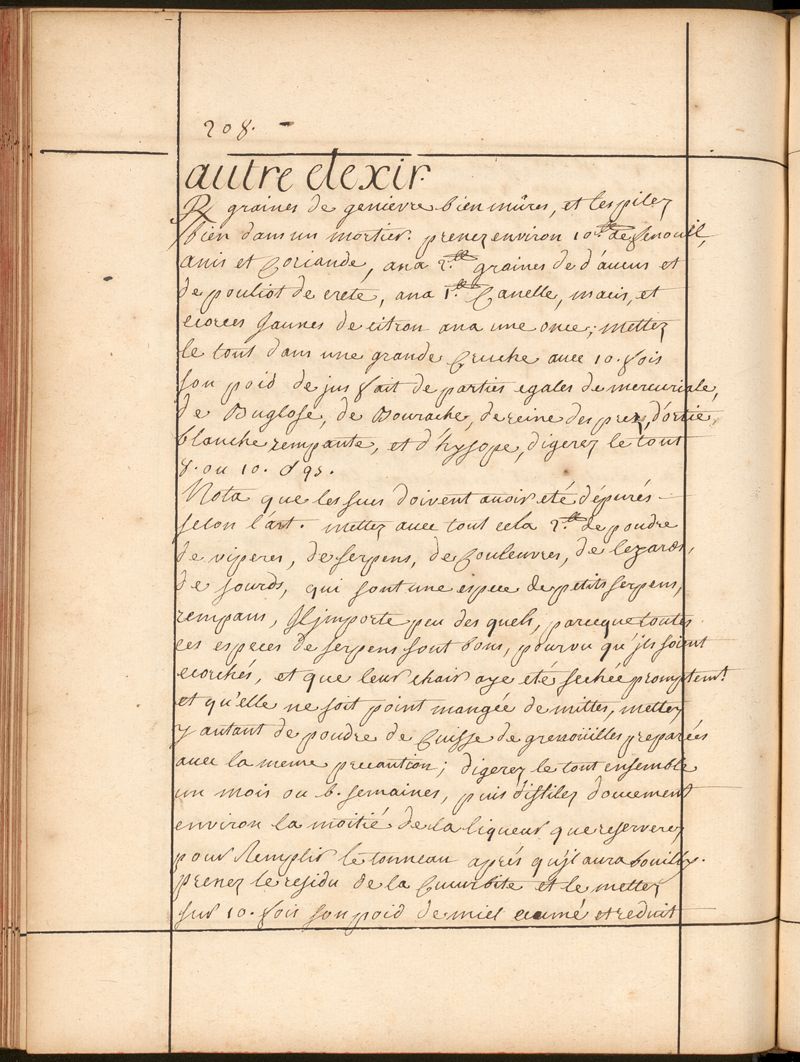 208.
autre elexir.
℞ graines de genievre bien mûres, et les pilez
bien dans un mortier. prenez environ 10.lb de fenouil,
anis et Coriande, ana 2.lb graines de d'aucus et
de pouliot de crete, ana 1.lb Canelle, macis, et
ecorces Jaunes de citron ana une once; mettez
le tout dans une grande Cruche avec 10. fois
son poid de jus fait de parties egales de mercuriale,
de Buglose, de Bourache, de reine des prez, d'ortie,
blanche rempante, et d'hysope, digerez le tout
8. ou 10. jrs.
Nota que les sucs doivent avoir été dépurés
selon l'art. mettez avec tout cela 2.lb de poudre
de viperes, de serpens, de Couleuvres, de lezards,
de sourds, qui sont une espece de petits serpens,
rempans, Il importe peu des quels, parceque toutes
ces especes de serpens sont bons, pourvu qu'ils soient
ecorchés, et que leur chair aye été sechée promptemt.
et qu'elle ne soit point mangée de mittes, mettez
y autant de poudre de Cuisse de grenouilles preparées
avec la meme precaution; digerez le tout ensemble
un mois ou 6. semaines, puis distilez doucement
environ la moitié de la liqueur que reserverez
pour Remplir le tonneau aprés qu'il aura bouilly.
prenez le residu de la Cucurbite et le mettez
sur 10. fois son poid de miel ecumé et reduit